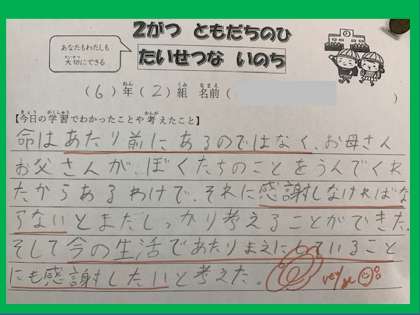 2がつ ともだちのひ
たいせつな いのち
あなたもわたしも
大切にできる
(6)年(2)組 名前(
【今日の学習でわかったことや考えたこと】
命はあたり前にあるのではなく、お母さん
お父さんが、ぼくたちのことをうんでくれ
たからあるわけで、それに感謝しなければな
らないとまだしっかり考えることができた。
そして今の生活であたりまえにしていること
にも感謝したいと考えた。